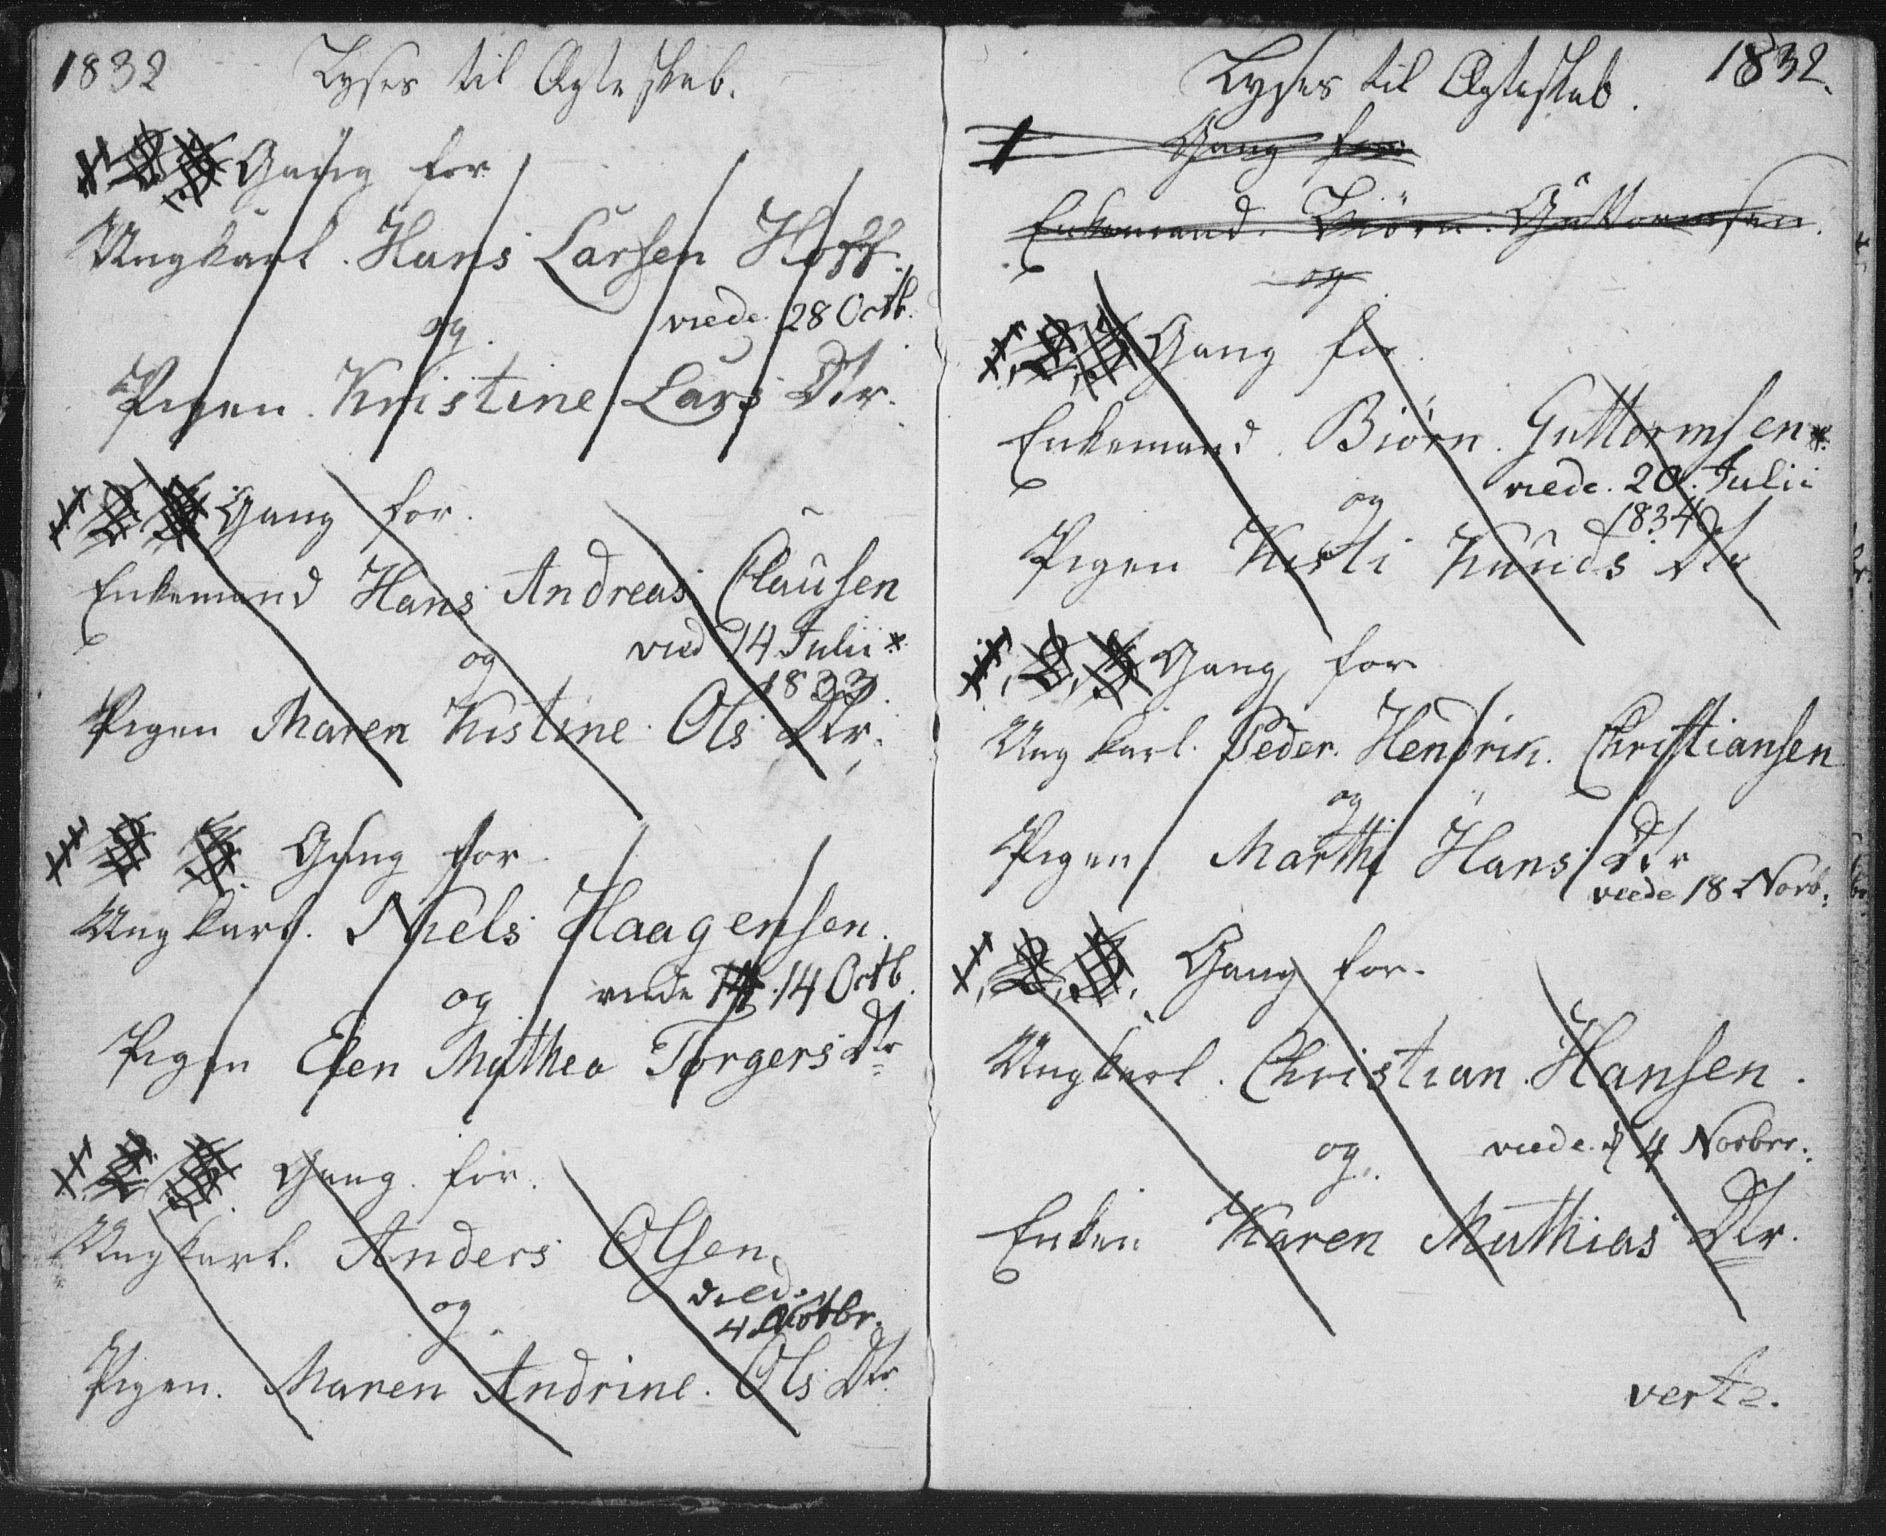 1832 Lyses til Ægteskab.
1. 2 3 Gang for
Ungkarl. Hans Larsen Hoff.
og viede. 28 Octb.
Pigen. Kristine Lars Dtr.
1 2 3 Gang for.
Enkemand Hans Andreas Clausen
og vied 14 Julii *
1833.
Pigen Maren Kistine. Ols Dtr,
1 2 3. Gang for
Ungkarl. Niels Haagensen.
og viede 14 Octb.
Pigen Elen Mathea Torgers Dtr
1 2 3. Gang. for.
Ungkarl. Anders Olsen.
og. vied.
4 Novbr.
Pigen. Maren Andrine. Ols Dtr
Lyses til Ægteskab. 1832.
1 Gang for
Enkemand. Biörn. Guttormsen.
og
1, 2, 3 Gang for.
Enkemand. Biörn. Guttormsen *.
og viede. 20. Julii
1834
Pigen Kisti Knuds Dtr
1, 2, 3 Gang for
Ungkarl. Peder. Hendrik. Christiansen
og
Pigen Marthe Hans Dtr
viede 18 Novb.
1, 2, 3, Gang for.
Ungkarl. Christian. Hansen.
og. viede. d 4 Novbrr.
Enken Karen Mathias Dtr.
verte.